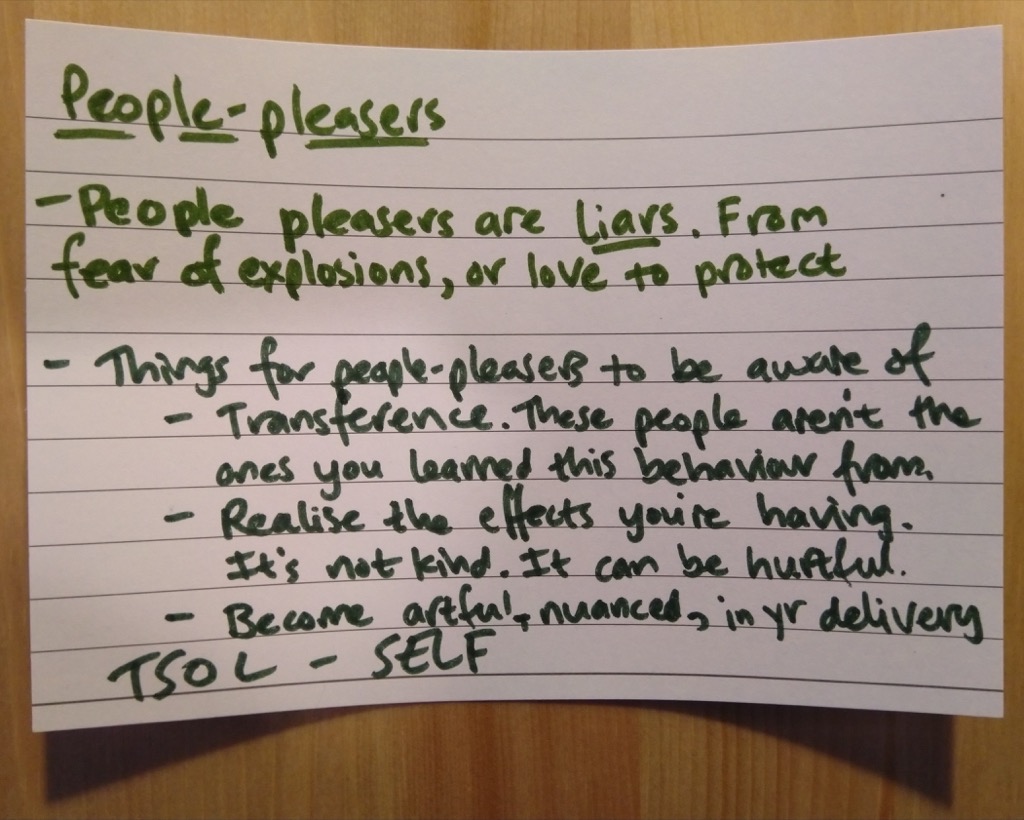 People-pleasers
- People pleasers are liars. From
fear of explosions, or love to protect
- Things for people-pleasers to be aware of
- Transference. These people aren't the
ones you learned this behaviour from.
- Realise the effects you're having.
It's not kind. It can be hurtful.
- Become artful + nuanced, in yr delivery
TSOL - SELF